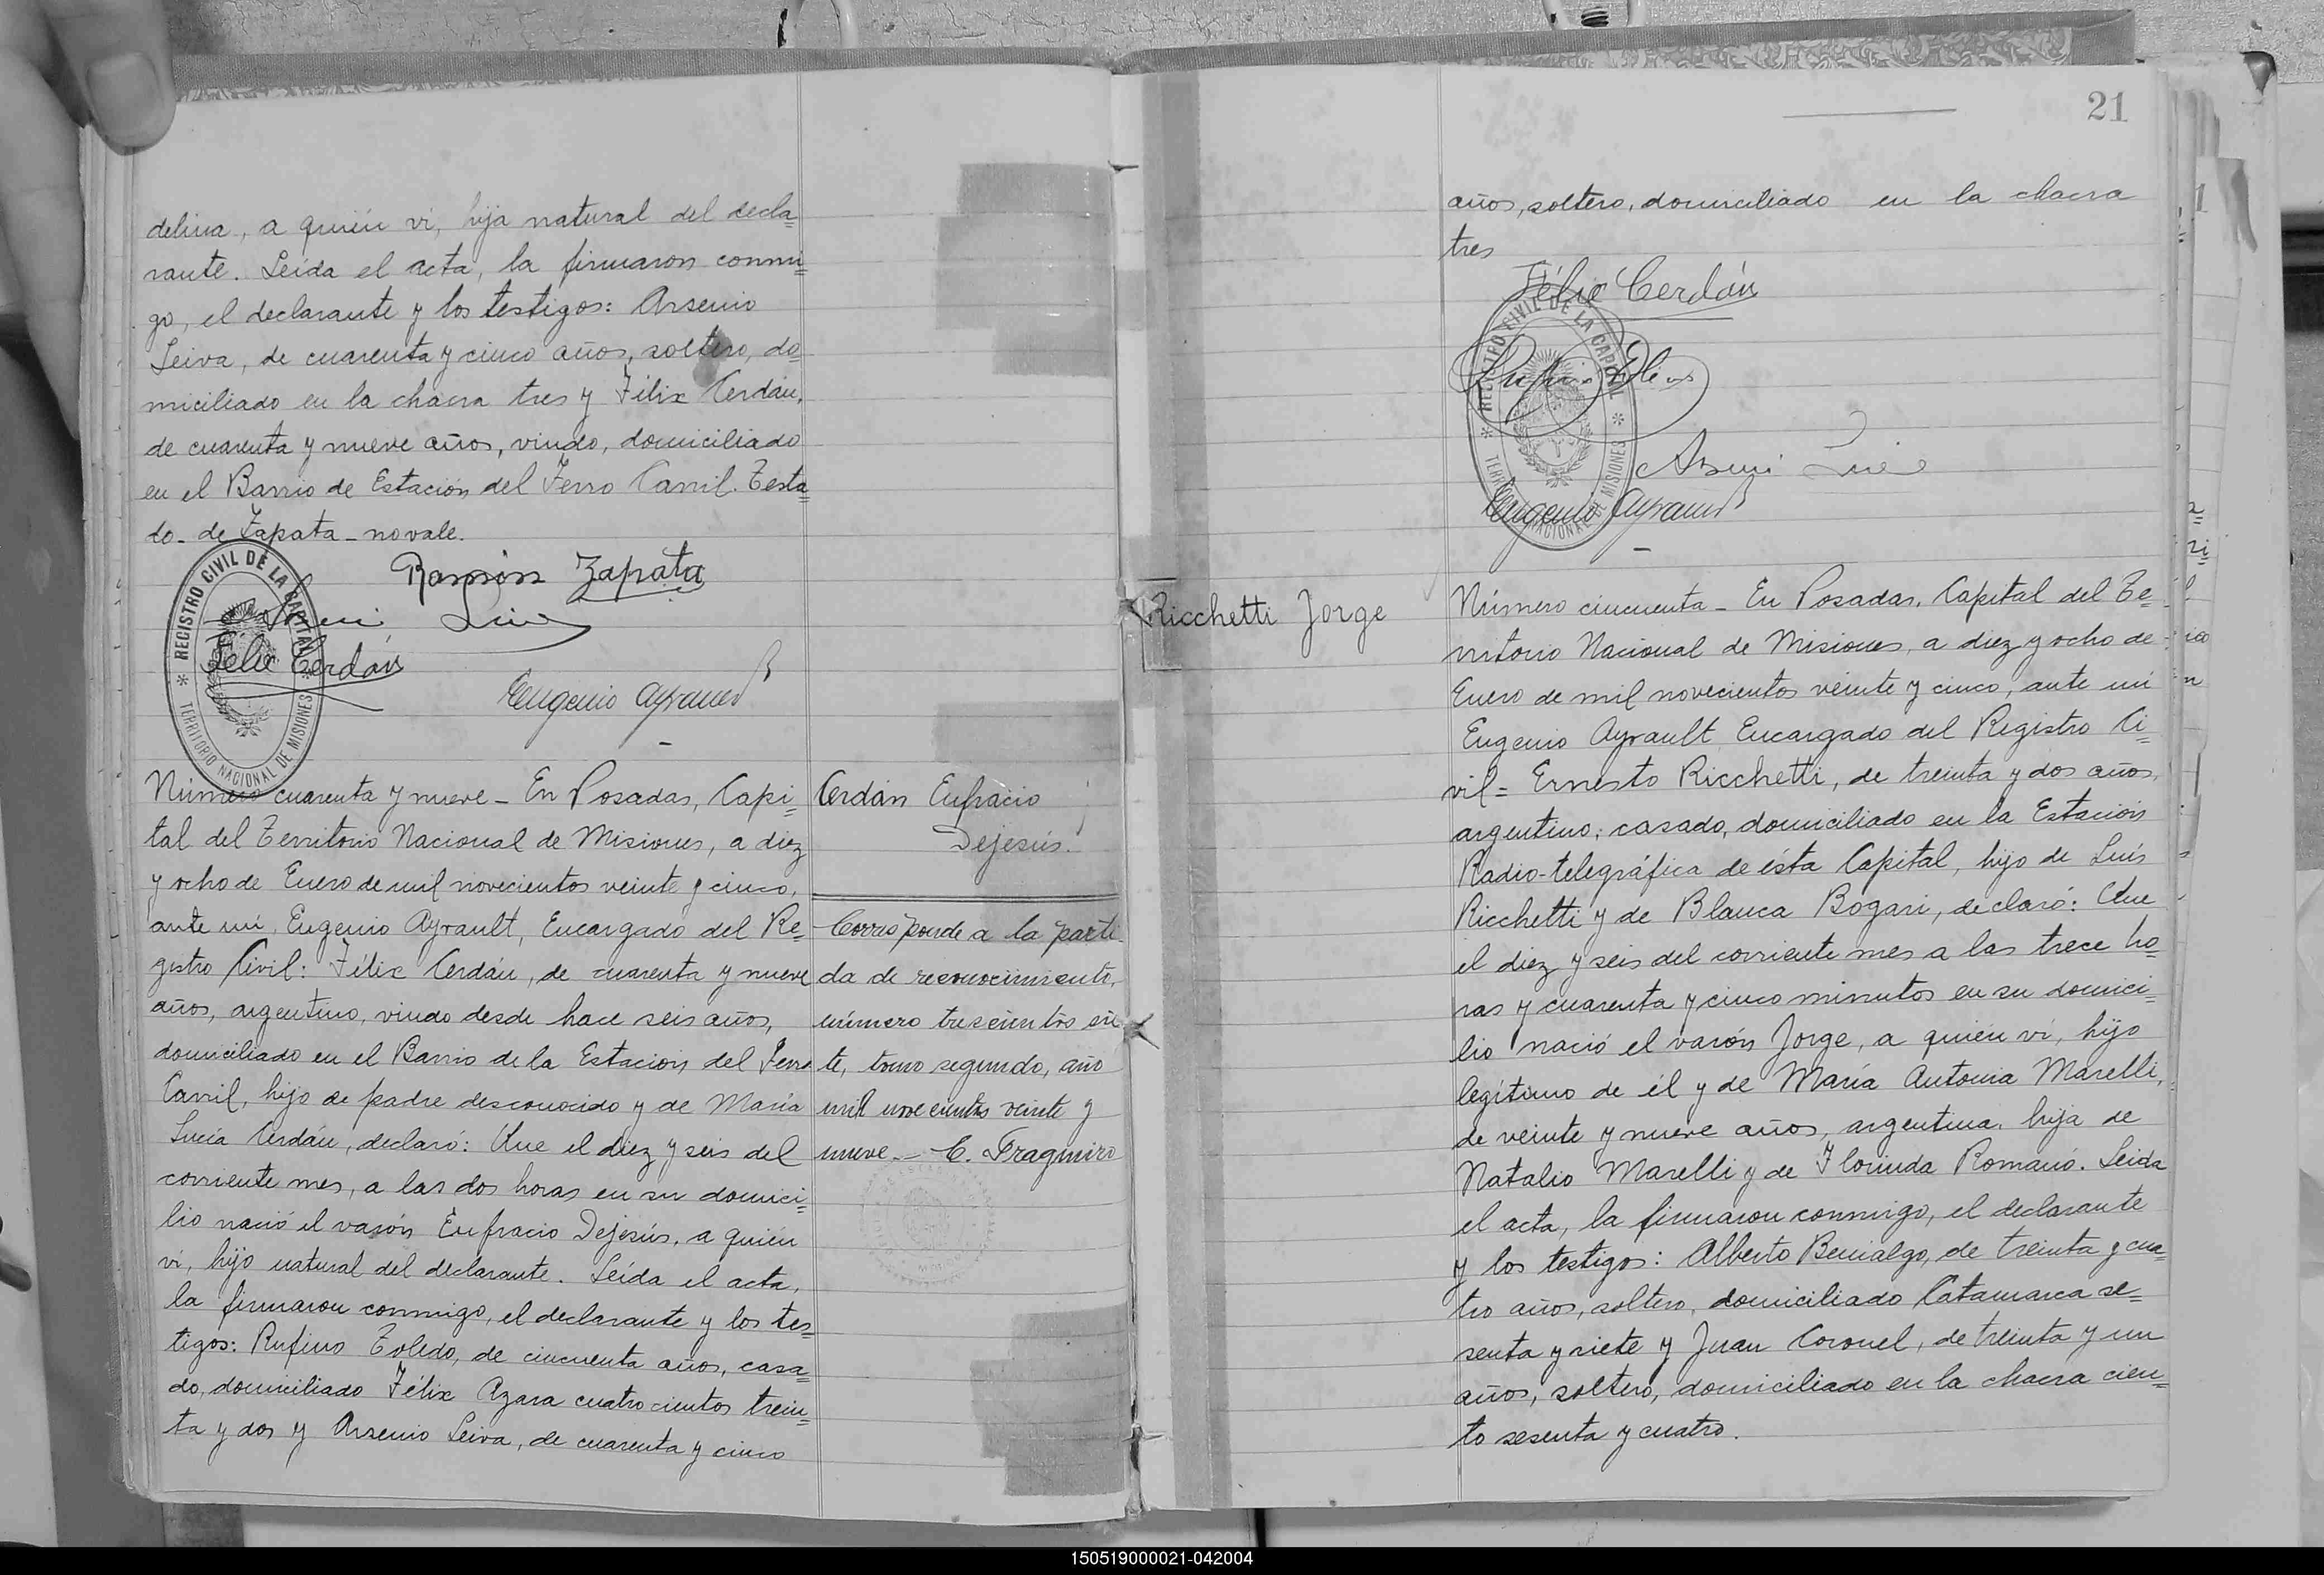 delina, a quién vi, hija natural del decla=
rante. Leída el acta, la firmaron conmi=
go, el declarante y los testigos: Arsenio
Leiva, de cuarenta y cinco años, soltero, do=
miciliado en la chacra tres y Félix Cerdán,
de cuarenta y nueve años, viudo, domiciliado
en el Barrio de Estación del Ferro Carril. Testa=
do - de Zapata - no vale.
Ramón Zapata
Félix Cerdán
Eugenio Ayrault
REGISTRO CIVIL DE LA CAPITAL
* TERRITORIO NACIONAL DE MISIONES *
Número cuarenta y nueve - En Posadas, Capi=
tal del Territorio Nacional de Misiones, a diez
y ocho de Enero de mil novecientos veinte y cinco,
ante mí, Eugenio Ayrault, Encargado del Re=
gistro Civil: Félix Cerdán, de cuarenta y nueve
años, argentino, viudo desde hace seis años,
domiciliado en el Barrio de la Estación del Ferro
Carril, hijo de padre desconocido y de María
Lucía Cerdán, declaró: Que el diez y seis del
corriente mes, a las dos horas en su domici=
lio nació el varón Eufracio Dejesús, a quién
vi, hijo natural del declarante. Leída el acta,
la firmaron conmigo, el declarante y los tes=
tigos: Rufino Toledo, de cincuenta años, casa=
do, domiciliado Félix Azara cuatrocientos trein=
ta y dos y Arsenio Leiva, de cuarenta y cinco
Cerdán Eufracio
Dejesús.
Corresponde a la parti-
da de reconocimiento,
número trescientos sie
te, tomo segundo, año
mil novecientos veinte y
nueve.- C. Fragueiro
21
años, soltero, domiciliado en la chacra
tres
Félix Cerdán
Eugenio Ayrault
REGISTRO CIVIL DE LA CAPITAL
* TERRITORIO NACIONAL DE MISIONES *
Ricchetti Jorge
Número cincuenta - En Posadas, Capital del Te=
rritorio Nacional de Misiones, a diez y ocho de
Enero de mil novecientos veinte y cinco, ante mí
Eugenio Ayrault Encargado del Registro Ci=
vil = Ernesto Ricchetti, de treinta y dos años,
argentino, casado, domiciliado en la Estación
Radio-telegráfica de ésta Capital, hijo de Luís
Ricchetti y de Blanca Bogari, declaró: Que
el diez y seis del corriente mes a las trece ho=
ras y cuarenta y cinco minutos en su domici=
lio nació el varón Jorge, a quién vi, hijo
legítimo de él y de María Antonia Marelli,
de veinte y nueve años, argentina, hija de
Natalio Marelli y de Florinda Romanó. Leida
el acta, la firmaron conmigo, el declarante
y los testigos: Alberto Benialgo, de treinta y cua=
tro años, soltero, domiciliado Catamarca se=
senta y siete y Juan Coronel, de treinta y un
años, soltero, domiciliado en la chacra cien=
to sesenta y cuatro.
150519000021-042004